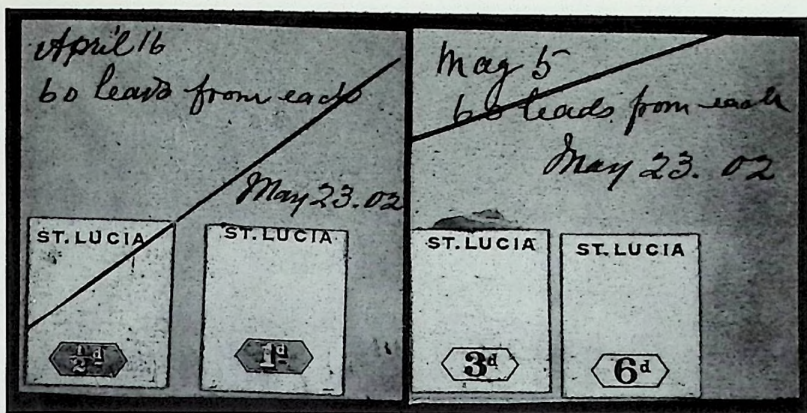 April 16
60 leads from each
May 23. 02
ST. LUCIA
ST. LUCIA
½d
1d
May 5
60 leads from each
May 23. 02
ST. LUCIA
ST. LUCIA
3d
6d